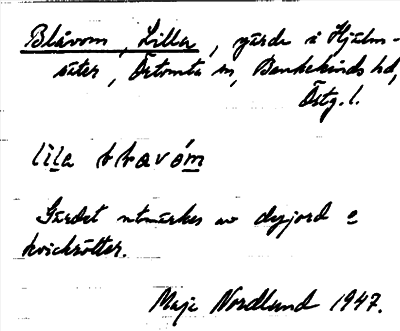 Blåvom, Lilla, gärde i Hjälm-
säter, Örtomta sn, Bankekinds hd,
Östg. l.
Gärdet utmärkes av dyjord o
kvickrötter.
Maje Nordlund 1947.